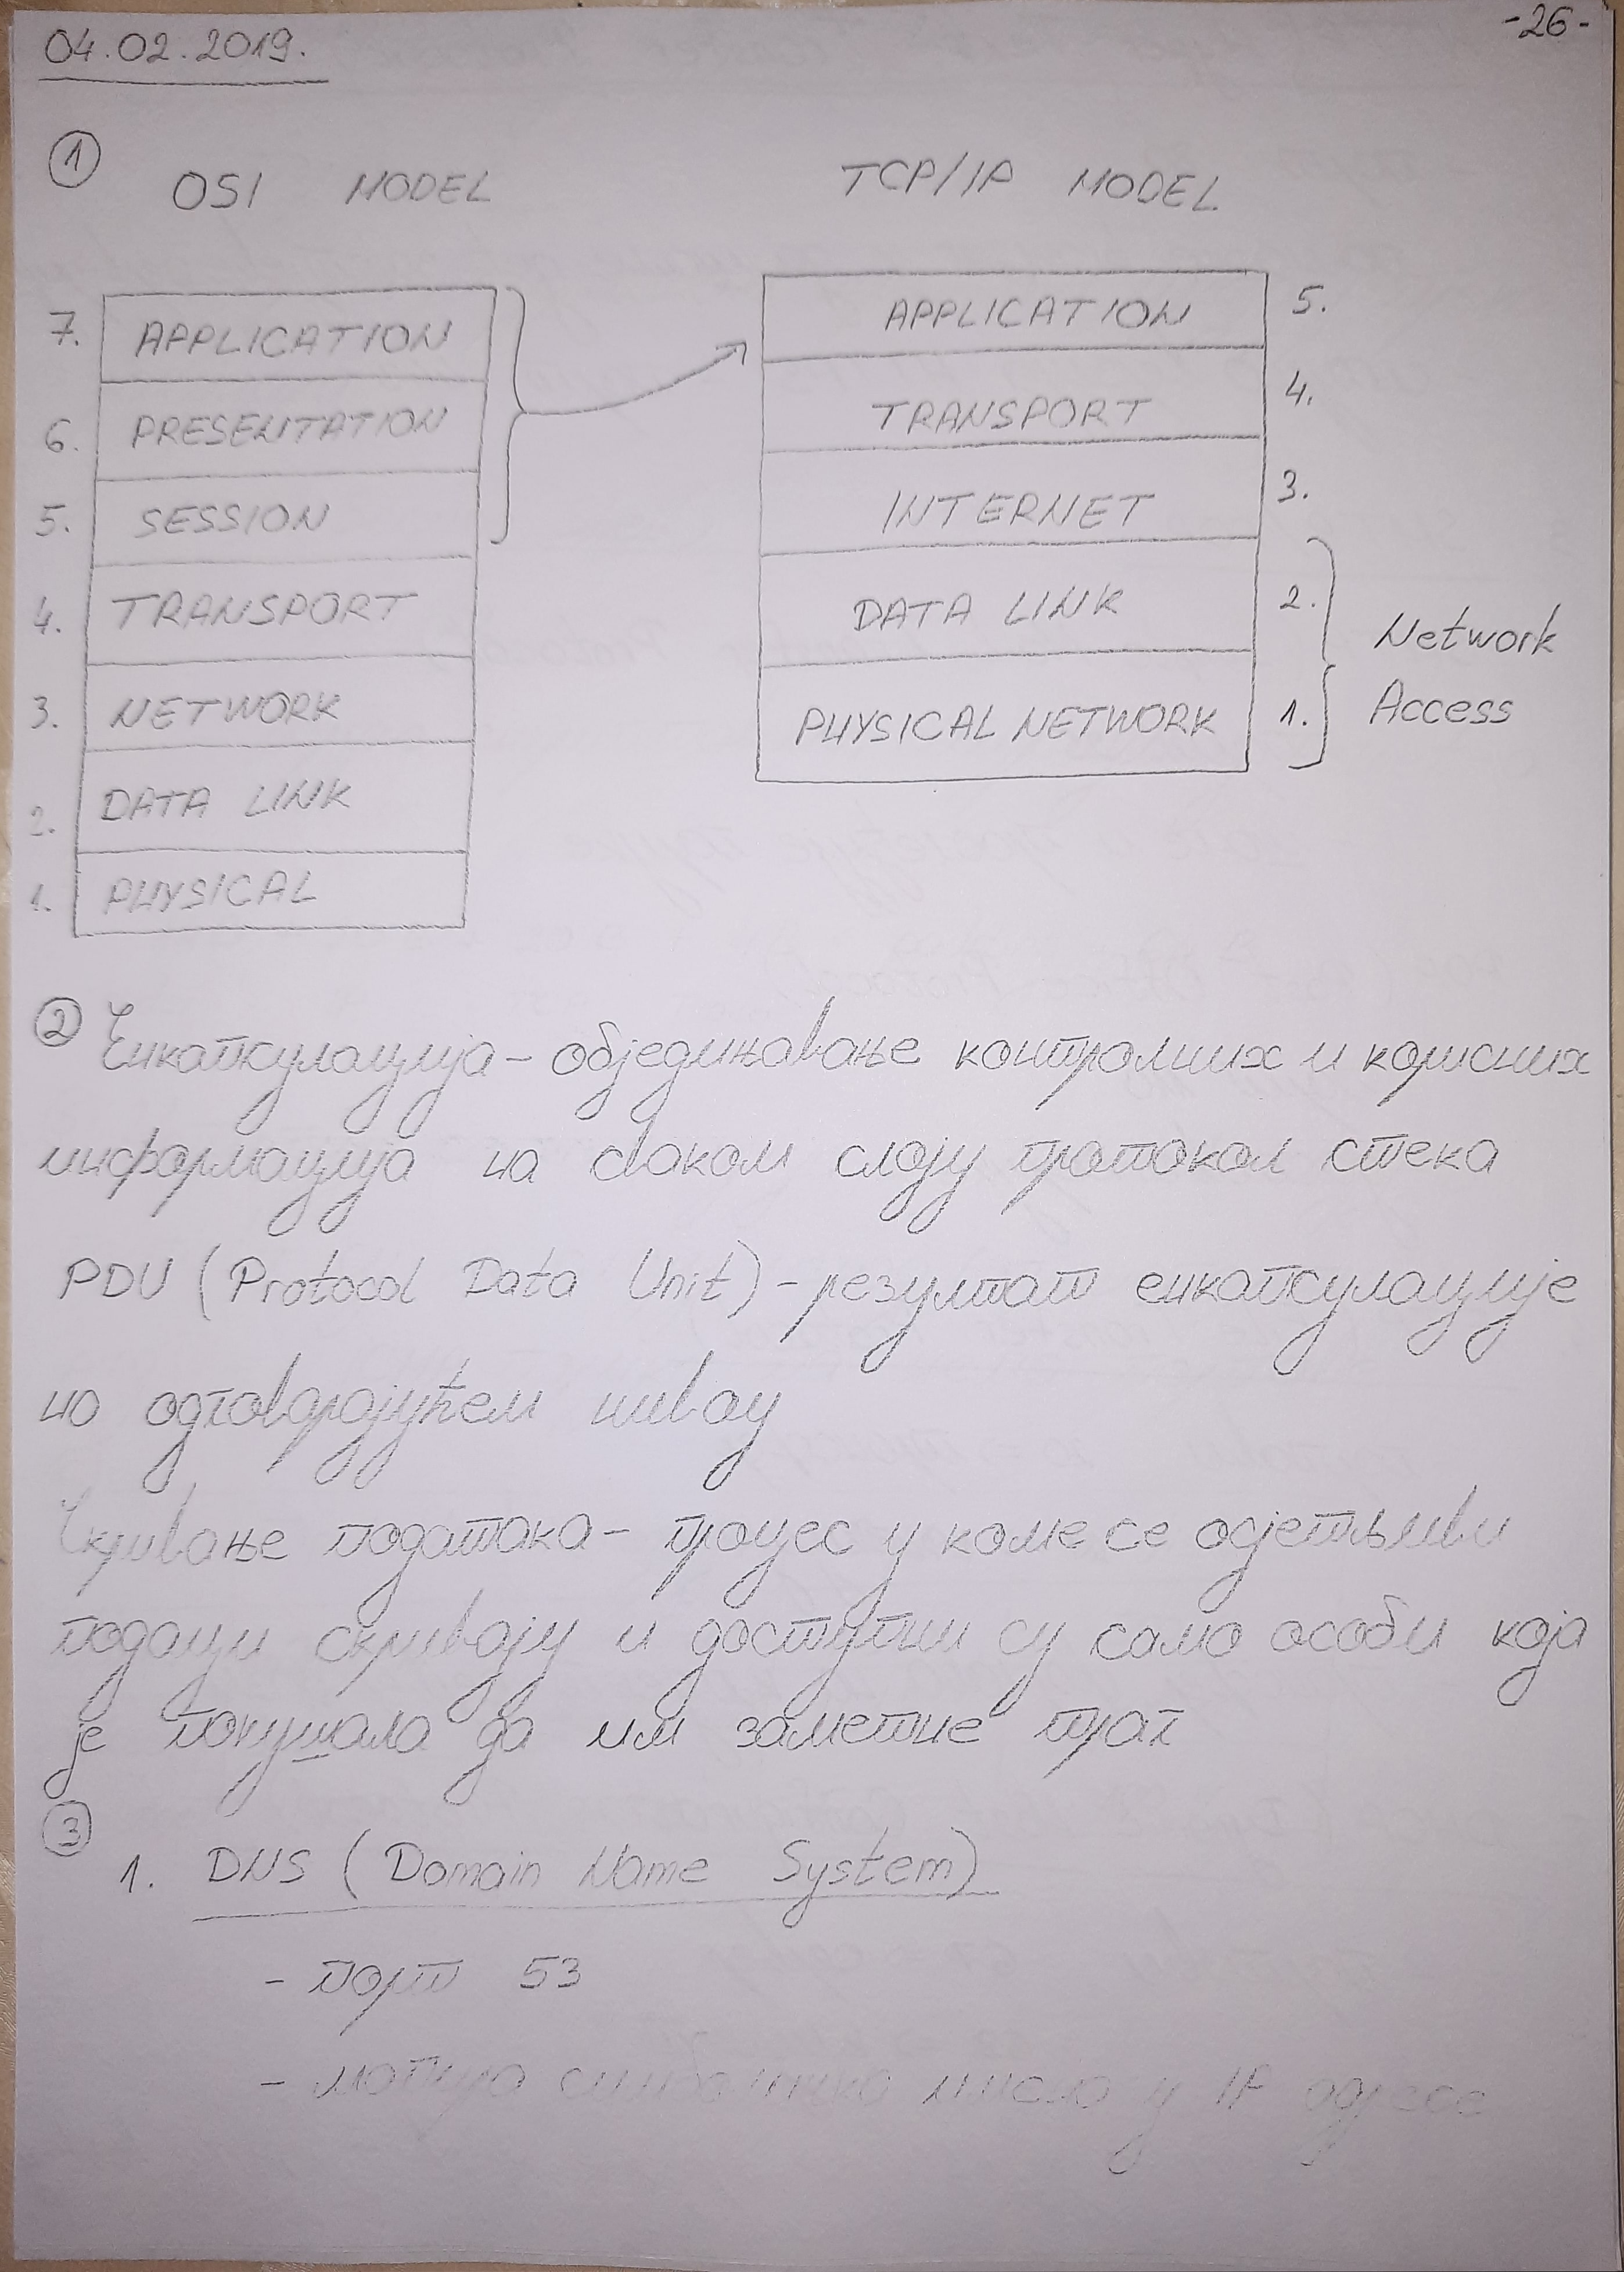 -26-
04.02.2019.
1
OSI MODEL
TCP/IP MODEL
7. APPLICATION
6. PRESENTATION
5. SESSION
4. TRANSPORT
3. NETWORK
2. DATA LINK
1. PHYSICAL
APPLICATION 5.
TRANSPORT 4.
INTERNET 3.
DATA LINK 2.
PHYSICAL NETWORK 1.
Network
Access
2 Енкапсулација - обједињавање контролних и корисних
информација на сваком слоју протокол стека
PDU (Protocol Data Unit) - резултат енкапсулације
на одговарајућем нивоу
Скривање података - процес у коме се осјетљиви
подаци скривају и доступни су само особи која
је покушала да им заметне траг
3
1. DNS (Domain Name System)
- порт 53
- мапира симболичко у IP адресе